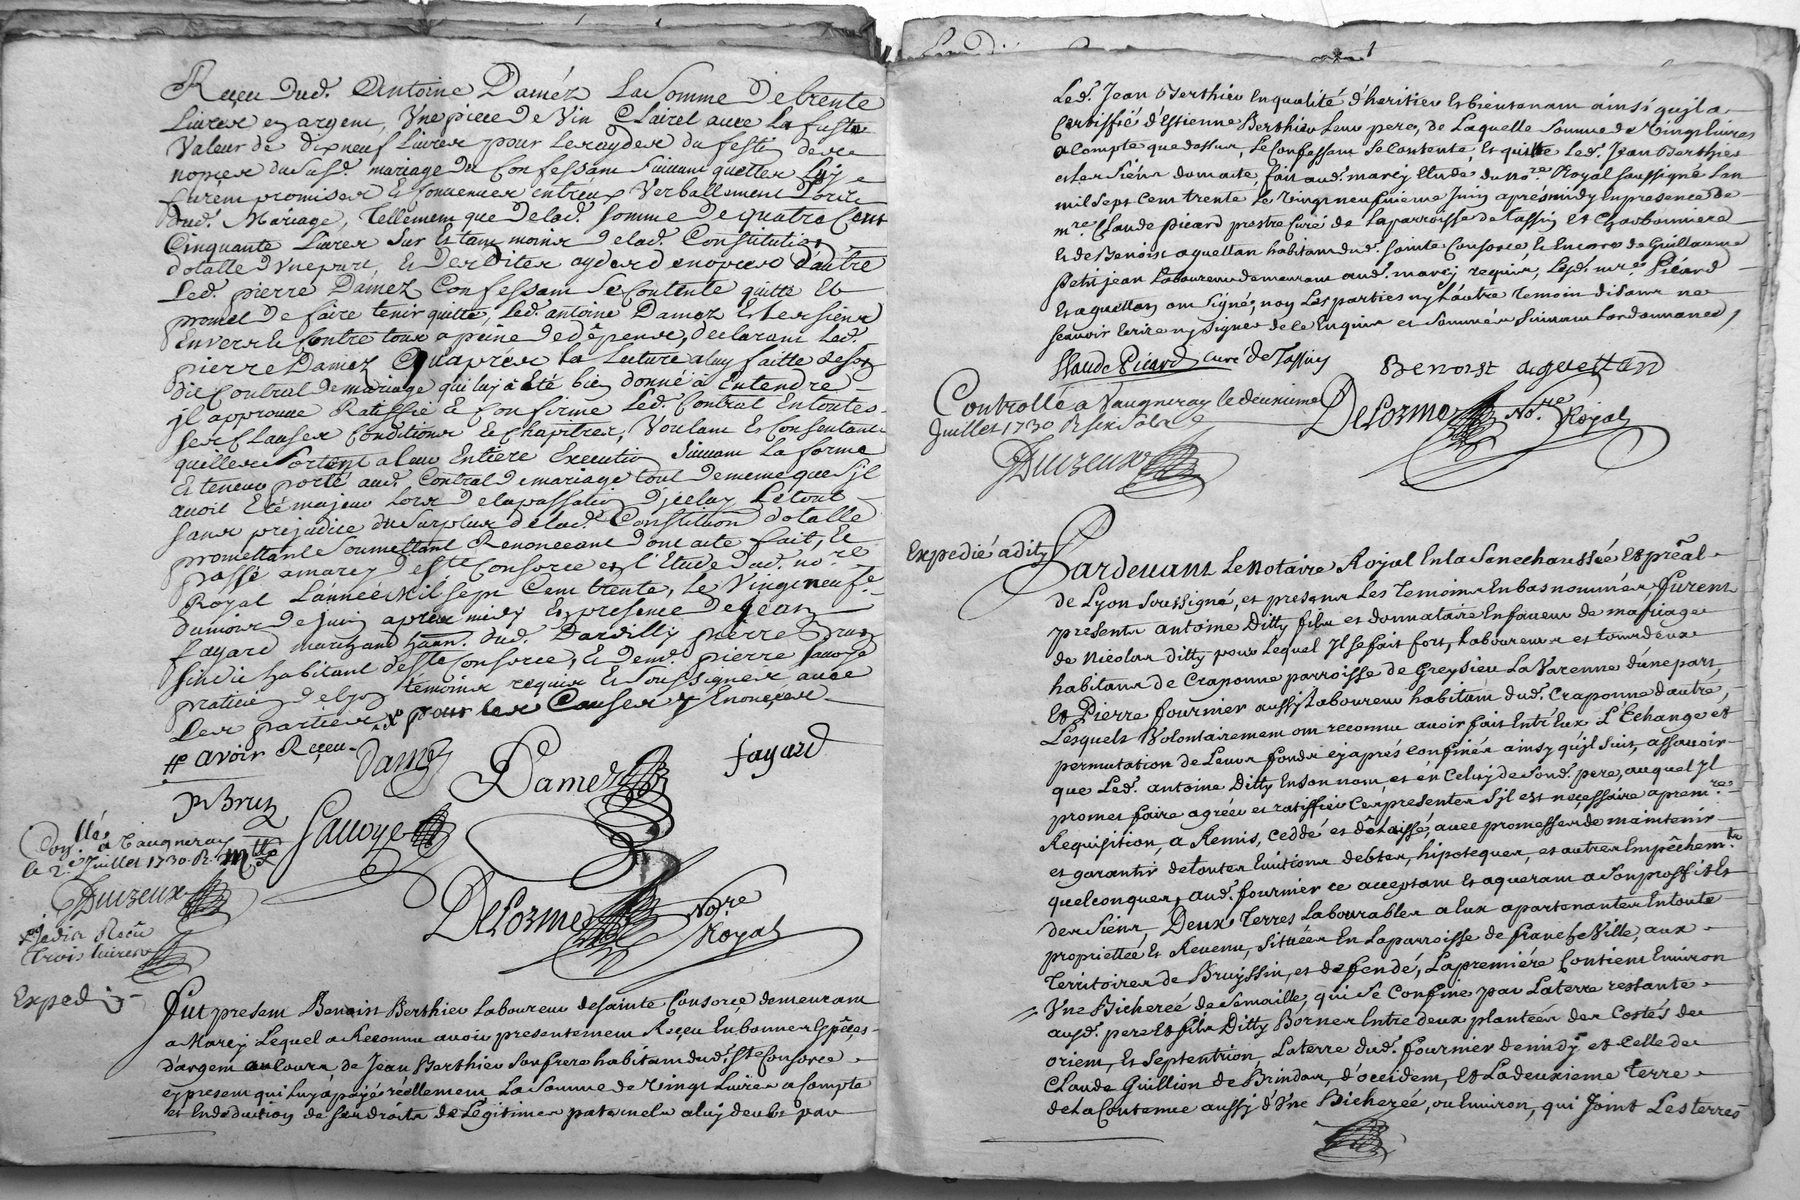 Reçeu dud. Antoine Daméz La Somme de trente
Livres en argent, Une piece de Vin Clairet avec la fuste
Valeur de dixneuf Livres pour Lerayder du festin de ce
nopces dusud. mariage du Confessant Suivant quelles luy
furent promises & Convenues entreux Verballement Lors
dud. Mariage, Tellement que de lad. somme de quatre Cent
Cinquante Livres Sur Estant moins de lad. Constitution
dotalle d'Une part, Et desdites ayde de nopces d'autre
Led. pierre Damez Confessant Se Contente quitte Et
promet de faire tenir quitte, Led. antoine Damez Et les siens
envers & Contre tous a peine de dépens, declarant Led.
pierre Damez Quaprés La Lecture a luy faitte de son
dit Contrat de mariage qui luy a Eté bien donné a Entendre
jl approuve Ratiffie & Confirme Led. Contrat En toutes
ses Clauses Conditions & Chapitres, Voulant & Consentant
quilles Sortent a leur Entiere Execution Suivant La forme
Et teneur porté aud. Contrat de mariage tout de meme que s'il
avoit Eté majeur Lors de la passation d'jceluy Le tout
sans prejudice du Surplus de lad. Constitution dotalle
promettant Soumettant Renonceant dont acte fait, Et
passé a marcy d ste Consorce en l'Etude dud. no.re
Royal L'année Mil sept Cent trente, Le Vingt neufe.
du mois de Juin apres midy En presence de Jean
fayard marchand habn. dud. Dardilly pierre Brun
sindic habitant de ste Consorce, & de md. pierre Sauoye
praticien de lyon temoins requis & Soussignes avec
Les parties # pour les Causes y Enoncées
# avoir Reçeu
Damé
Damez
fayard
P Brun
Sauoye
Con.llé a Vaugneray
le 2.e Juillet 1730 R.
Duizeux
Delorme No.re Royal
Expedié Recu
trois livres
Exped
Fut present Benoist Berthieu Laboureur de Sainte Consorce demeurant
a Marcy Lequel a Reconnu avoir presentement Reçeu En bonnes Espéces
d'argent au Cours, de Jean Berthieu Son frere habitant dud. Ste Consorce
cy present qui luy a payé réellement La Somme de Vingt Livres a Compte
et En deduction de ses droits de Legitimes paternels a luy deubs par
Led. Jean Berthieu En qualité d'heritier & bientenant ainsi qu'jl a
Certiffié d'Estienne Berthieu Leur pere, de Laquelle Somme de Vingt livres
a Compte que dessus, Le Confessant Se Contente, & quitte Led. Jean Berthieu
et Les Siens dont acte, fait aud. marcy Etude du No.re Royal Soussigné Lan
mil Sept Cent trente Le Vingt neufvieme Juin aprés midy En presence de
m.re Claude Picard prestre Curé de La parroisse de Tassin Et Charbonniere
Et de Benoist aguettan habitant dud. Sainte Consorce, Et Encore de Guillaume
Petitjean Laboureur demeurant aud. marcy requis, Lesd. m.re Picard
Et aguettan ont Signé, non Les parties ny L'autre Temoin disant ne
scavoir Ecrire ny signer de ce Enquis et Sommés Suivant Lordonnance,
Claude Picard curé de Tassin
Benoist aguettan
Controllé a Vaugneray le deuxieme
Juillet 1730 R
Duizeux
Delorme No.re Royal
Expedié a dity
Pardevant Le Notaire Royal En la Senechaussée Et préal
de Lyon Soussigné, et presens Les Temoins En bas nommés, Furent
presents antoine Ditty fils et donnataire En faveur de mariage
de Nicolas ditty pour Lequel jl Se fait fort, Laboureurs et tous deux
habitans de Craponne parroisse de Greysieu La Varenne d'une part,
Et Pierre fournier aussy Laboureur habitant dud. Craponne d'autre,
Lesquels Volontairement ont reconnu avoir fait Entr'Eux L'Echange et
permutation de Leurs fonds cy aprés Confinés ainsy qu'jl Suit, assavoir
que Led. antoine Ditty En son nom, et en Celuy de Sond. pere, auquel jl
promet faire agréer et ratiffier Ces presentes s'jl est necessaire a prem.res
Requisition, a Remis, ceddé et délaissé, avec promesse de maintenir
et garantir de toutes Evictions debtes, hipoteques, et autres Empêchem.ts
quelconques, aud. fournier ce acceptant Et aquerant a Son proffit Et
des Siens, Deux Terres Labourables a Eux apartenantes En toute
proprietteé Et Revenu, Situées En La parroisse de francheville, aux
Territoires de Bruyssin, et defendé, La premiére Contient Environ
Une Bicherée de Semaille, qui Se Confine par La terre restante
ausd. pere Et fils Ditty Bornes Entre deux plantées des Costés de
orient, Et Septentrion, La terre dud. fournier de midy, et Celle de
Claude Guillion de Brindas, d'occident, Et La deuxieme Terre
de La Contenue aussy d'Une Bicherée, ou Environ, qui Joint Les terres